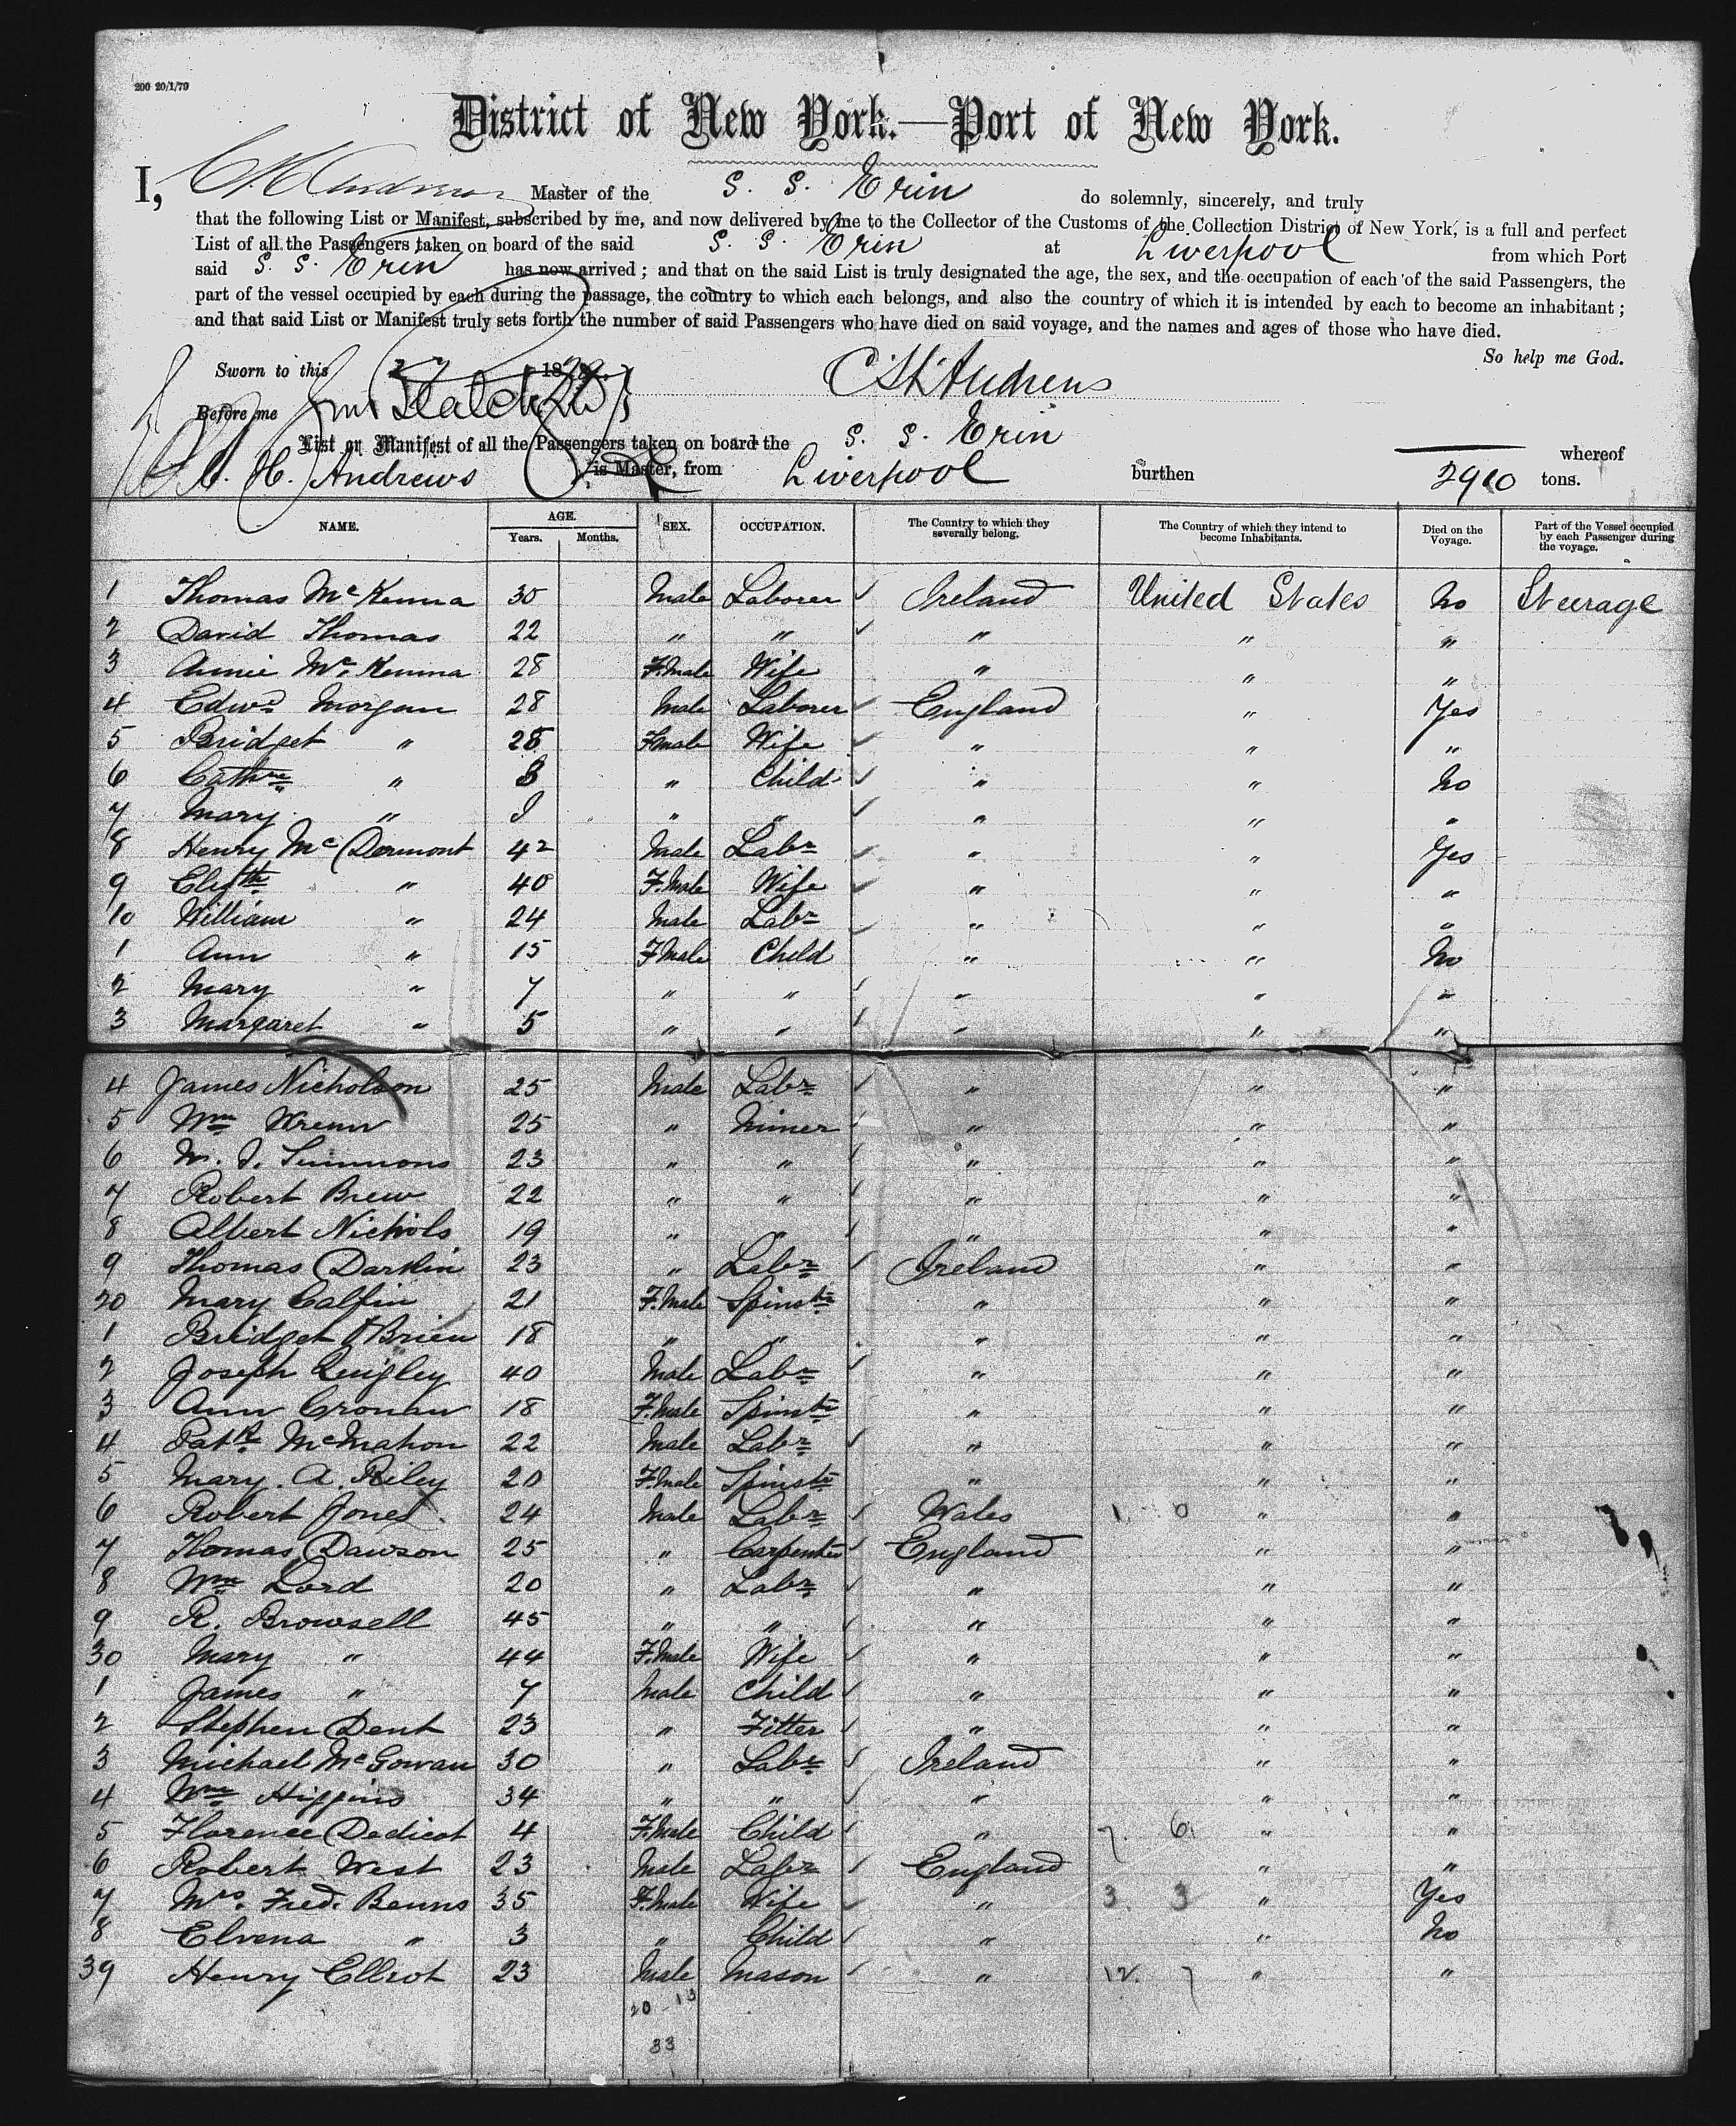 200 20/1/79
District of New York.—Port of New York.
I, Master of the S. S. Erin do solemnly, sincerely, and truly
that the following List or Manifest, subscribed by me, and now delivered by me to the Collector of the Customs of the Collection District of New York, is a full and perfect
List of all the Passengers taken on board of the said S. S. Erin at Liverpool from which Port
said S. S. Erin has now arrived; and that on the said List is truly designated the age, the sex, and the occupation of each of the said Passengers, the
part of the vessel occupied by each during the passage, the country to which each belongs, and also the country of which it is intended by each to become an inhabitant;
and that said List or Manifest truly sets forth the number of said Passengers who have died on said voyage, and the names and ages of those who have died.
So help me God.
Sworn to this 18 Andrews
Before me
List or Manifest of all the Passengers taken on board the S. S. Erin whereof
H. Andrews is Master, from Liverpool burthen 2910 tons.
NAME. AGE. SEX. OCCUPATION. The Country to which they severally belong. The Country of which they intend to become Inhabitants. Died on the Voyage. Part of the Vessel occupied by each Passenger during the voyage.
Years. Months.
1 Thomas McKenna 30 Male Laborer Ireland United States No Steerage
2 David Thomas 22 " " " " "
3 Annie McKenna 28 F.Male Wife " " "
4 Edwd Morgan 28 Male Laborer England " Yes
5 Bridget " 28 Fmale Wife " " "
6 Cathne " 3 " Child " " No
7 Mary " " " " " "
8 Henry McDermont 42 Male Labr " " Yes
9 Elizth " 40 F.Male Wife " " "
10 William " 24 Male Labr " " "
1 Ann " 15 F Male Child " " No
2 Mary " 7 " " " " "
3 Margaret " 5 " " " " "
4 James Nicholson 25 Male Labr " " "
5 Wm Wrenn 25 " Miner " " "
6 Simmons 23 " " " " "
7 Robert Brew 22 " " " " "
8 Albert Nichols 19 " " " " "
9 Thomas Darkin 23 " Labr Ireland " "
20 Mary Calfin 21 F.Male Spinstr " " "
1 Bridget O'Brien 18 " " " " "
2 Joseph Quigley 40 Male Labr " " "
3 Ann Cronan 18 F.Male Spinstr " " "
4 Patk McMahon 22 Male Labr " " "
5 Mary. A. Riley 20 F.Male Spinstr " " "
6 Robert Jones 24 Male Labr Wales 1. 0 " "
7 Thomas Dawson 25 " Carpenter England " "
8 Wm Lord 20 " Labr " " "
9 R. Browsell 45 " " " " "
30 Mary " 44 F.Male Wife " " "
1 James " 7 Male Child " " "
2 Stephen Dent 23 " Fitter " " "
3 Michael McGowan 30 " Labr Ireland " "
4 Wm Higgins 34 " " " " "
5 Florence Dedicot 4 F.Male Child " 7. 6. " "
6 Robert West 23 Male Labr England " "
7 Mrs. Fred. Benns 35 F.Male Wife " 3. 3 " Yes
8 Elvena " 3 " Child " " No
39 Henry Ellrot 23 Male Mason " 12. 7 " "
20 - 13
33